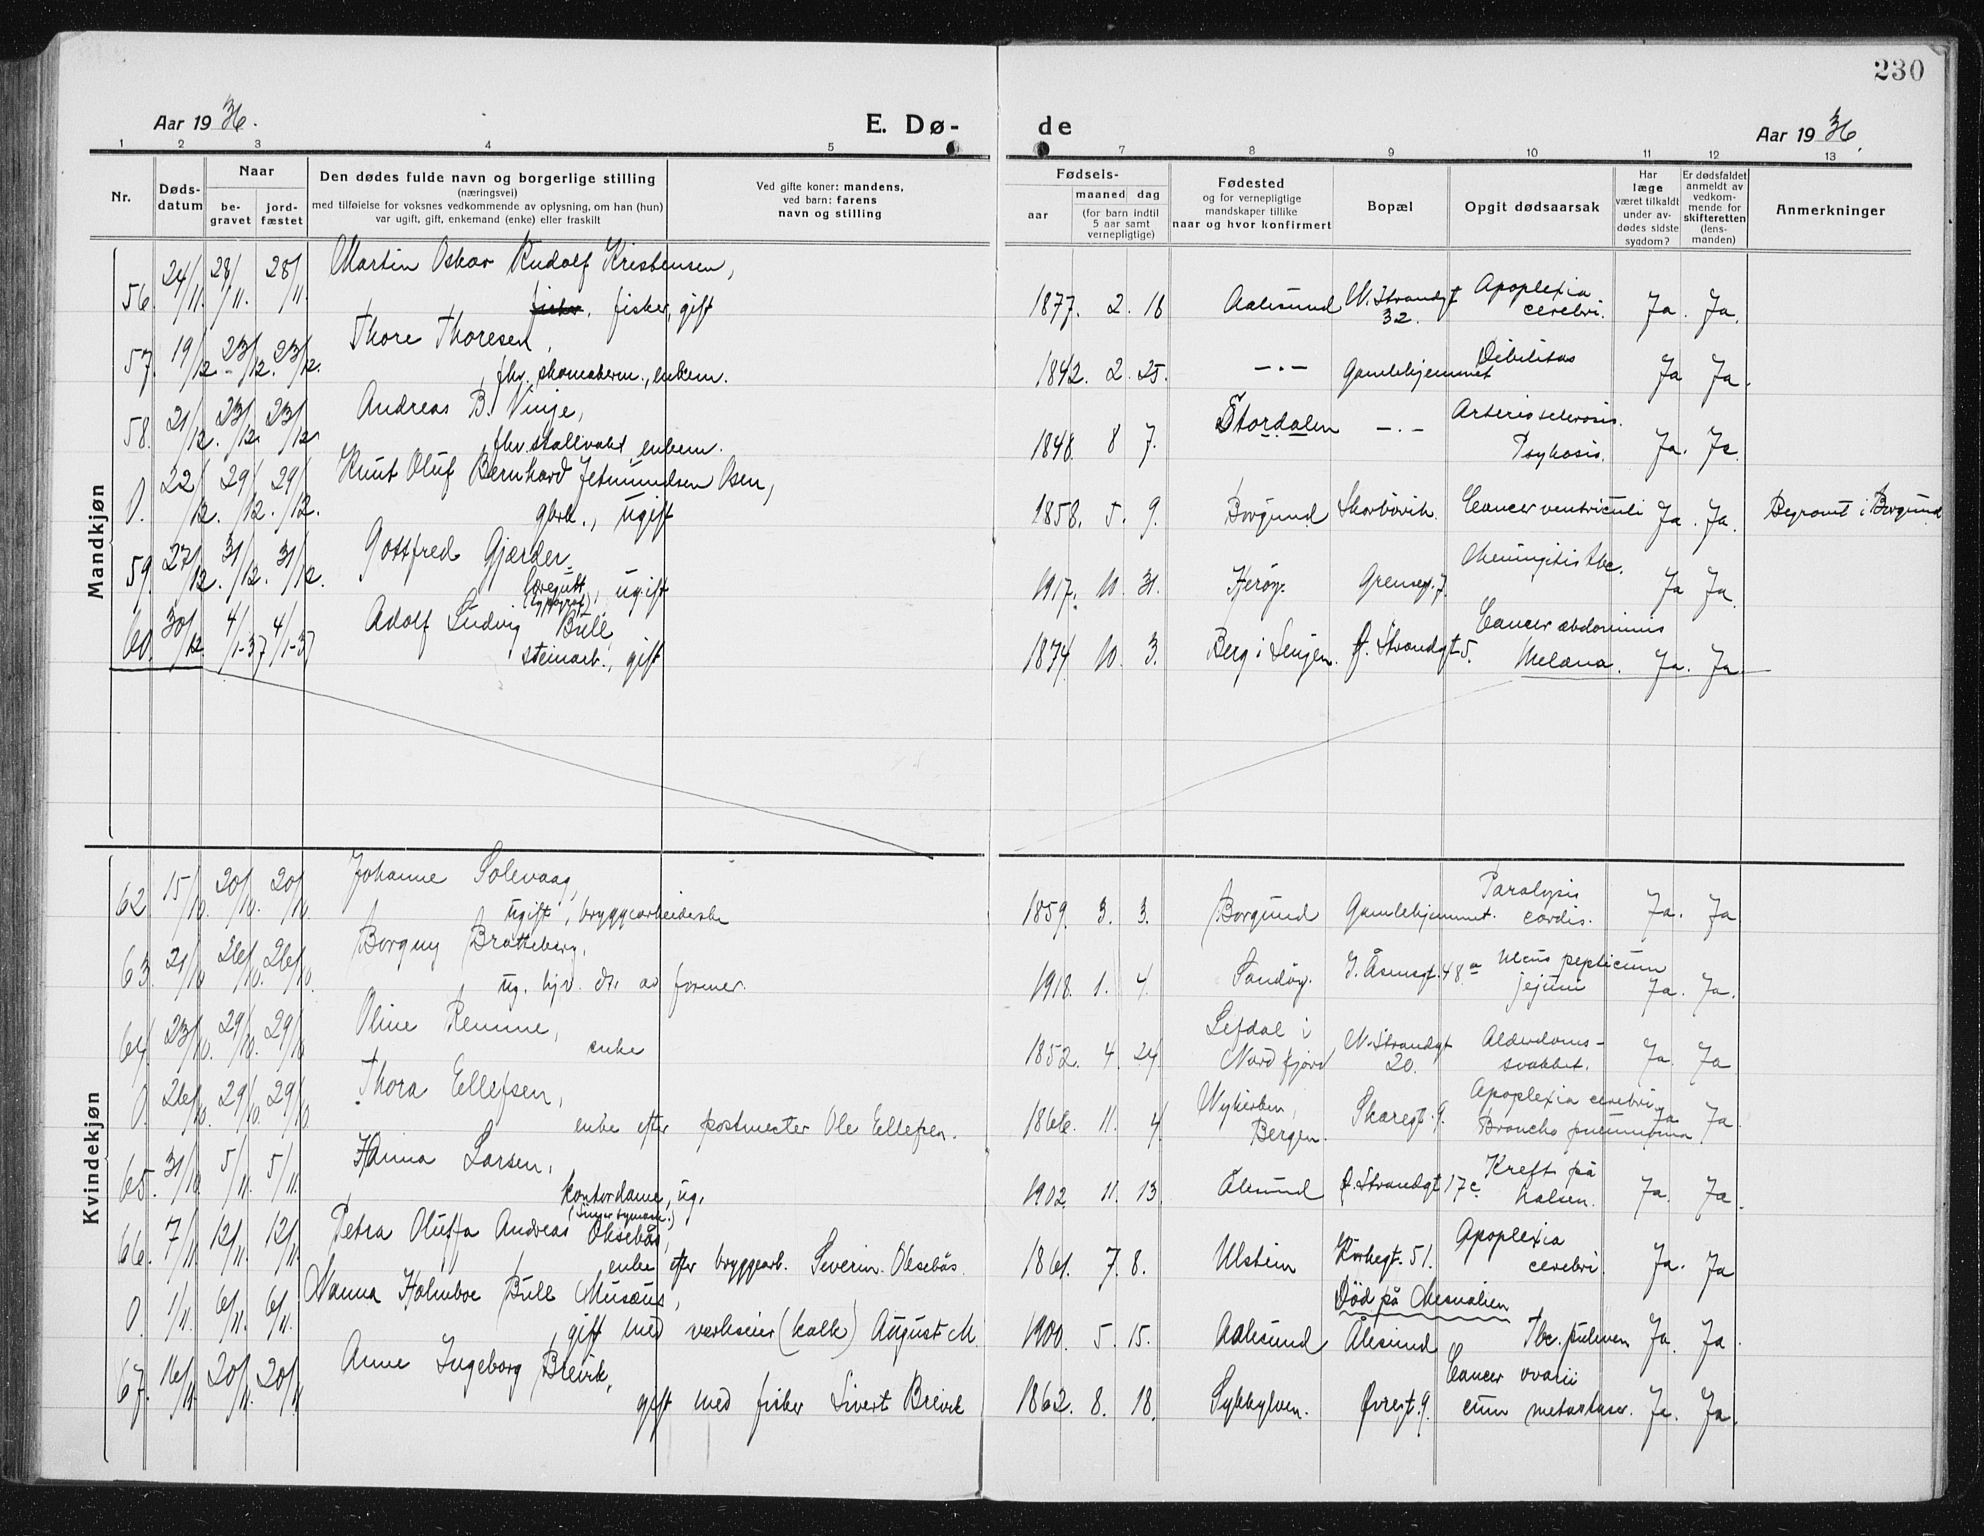 230
Aar 1936.
E. Dø-
de
Aar 1936.
1 2 3 4 5 7 8 9 10 11 12 13
Nr.
Døds-
datum
Naar
be-
gravet
jord-
fæstet
Den dødes fulde navn og borgerlige stilling
(næringsvei)
med tilføielse for voksnes vedkommende av oplysning, om han (hun)
var ugift, gift, enkemand (enke) eller fraskilt
Ved gifte koner: mandens,
ved barn: farens
navn og stilling
Fødsels-
aar
maaned dag
(for barn indtil
5 aar samt
vernepligtige)
Fødested
og for vernepligtige
mandskaper tillike
naar og hvor konfirmert
Bopæl
Opgit dødsaarsak
Har
læge
været tilkaldt
under av-
dødes sidste
sygdom?
Er dødsfaldet
anmeldt av
vedkom-
mende for
skifteretten
(lens-
manden)
Anmerkninger
Mandkjøn
56. 24/11. 28/11. 28/11. Martin Oskar Rudolf Kristensen,
fisker, gift
1877. 2. 18 Aalesund N. Strandgt 32. Apoplexia cerebri. Ja. Ja.
57. 19/12. 23/12. 23/12. Thore Thoresen,
fhv. skomakerm., enkem.
1842. 2. 25. —„— Gamlehjemmet Debilitas Ja Ja.
58. 21/12. 23/12. 23/12. Andreas B. Vinje,
fhv. stallvakt, enkem.
1848 8 7. Stordalen —„— Arteriosclerosis. Psykosis. Ja. Ja.
0. 22/12. 29/12. 29/12. Knut Oluf Bernhard Jetmundsen Osen,
gbrk., ugift
1858. 5. 9. Borgund Skorbøvik. Cancer ventriculi Ja. Ja. Begravet i Borgund
59. 27/12. 31/12. 31/12. Gottfred Gjærder,
læregutt (typograf), ugift
1917. 10. 31. Herøy. Grensegt. 7. Meningitis tbc. Ja Ja.
60. 30/12. 4/1-37 4/1-37 Adolf Ludvig Bull,
steinarb., gift
1874. 10. 3. Berg i Senjen. Ø. Strandgt 5. Cancer abdominis Melæna. Ja. Ja.
Kvindekjøn
62 15/10. 20/10. 20/10. Johanne Solevaag,
ugift, bryggearbeiderske
1859. 3. 3. Borgund Gamlehjemmet. Paralysis cordis. Ja. Ja
63. 21/10 26/10. 26/10. Borgny Bratteberg,
ug. hjv. dtr av former.
1918. 1. 4. Sandøy. I. Åsensgt. 48 a Ulcus pepticum jejuni Ja. Ja.
64. 23/10. 29/10. 29/10 Oline Remme,
enke
1852. 4. 24 Lefdal i Nordfjord N. Strandgt 20. Alderdoms- svakhet. Ja. Ja
0. 26/10. 29/10 29/10. Thora Ellefsen,
enke efter postmester Ole Ellefsen.
1866. 11. 4. Nykirken, Bergen. Skaregt. 9. Apoplexia cerebri Broncho pneumonia Ja Ja.
65. 31/10 5/11. 5/11. Hanna Larsen,
kontordame, ug.
1902 11. 13 Ålesund Ø. Strandgt 17 c. Kreft på halsen. Ja. Ja.
66. 7/11 12/11. 12/11. Petra Oluffa Andreas Oksebås,
enke efter bryggearb. Severin Oksebås.
1861. 7. 8. Ulstein Kirkegt. 51. Apoplexia cerebri. Ja. Ja
0. 1/11. 6/11. 6/11. Nanna Holmboe Bull Musæus,
gift med verkseier (kalk) August M.
1900. 5. 15. Aalesund Død på Mesnalien Ålesund Tbc. pulmon Ja. Ja.
67. 16/11 20/11. 20/11 Anne Ingeborg Brevik,
gift med fisker Sivert Brevik
1862. 8. 18. Sykkylven. Øvregt. 9. Cancer ovarii cum metastaser. Ja. Ja.